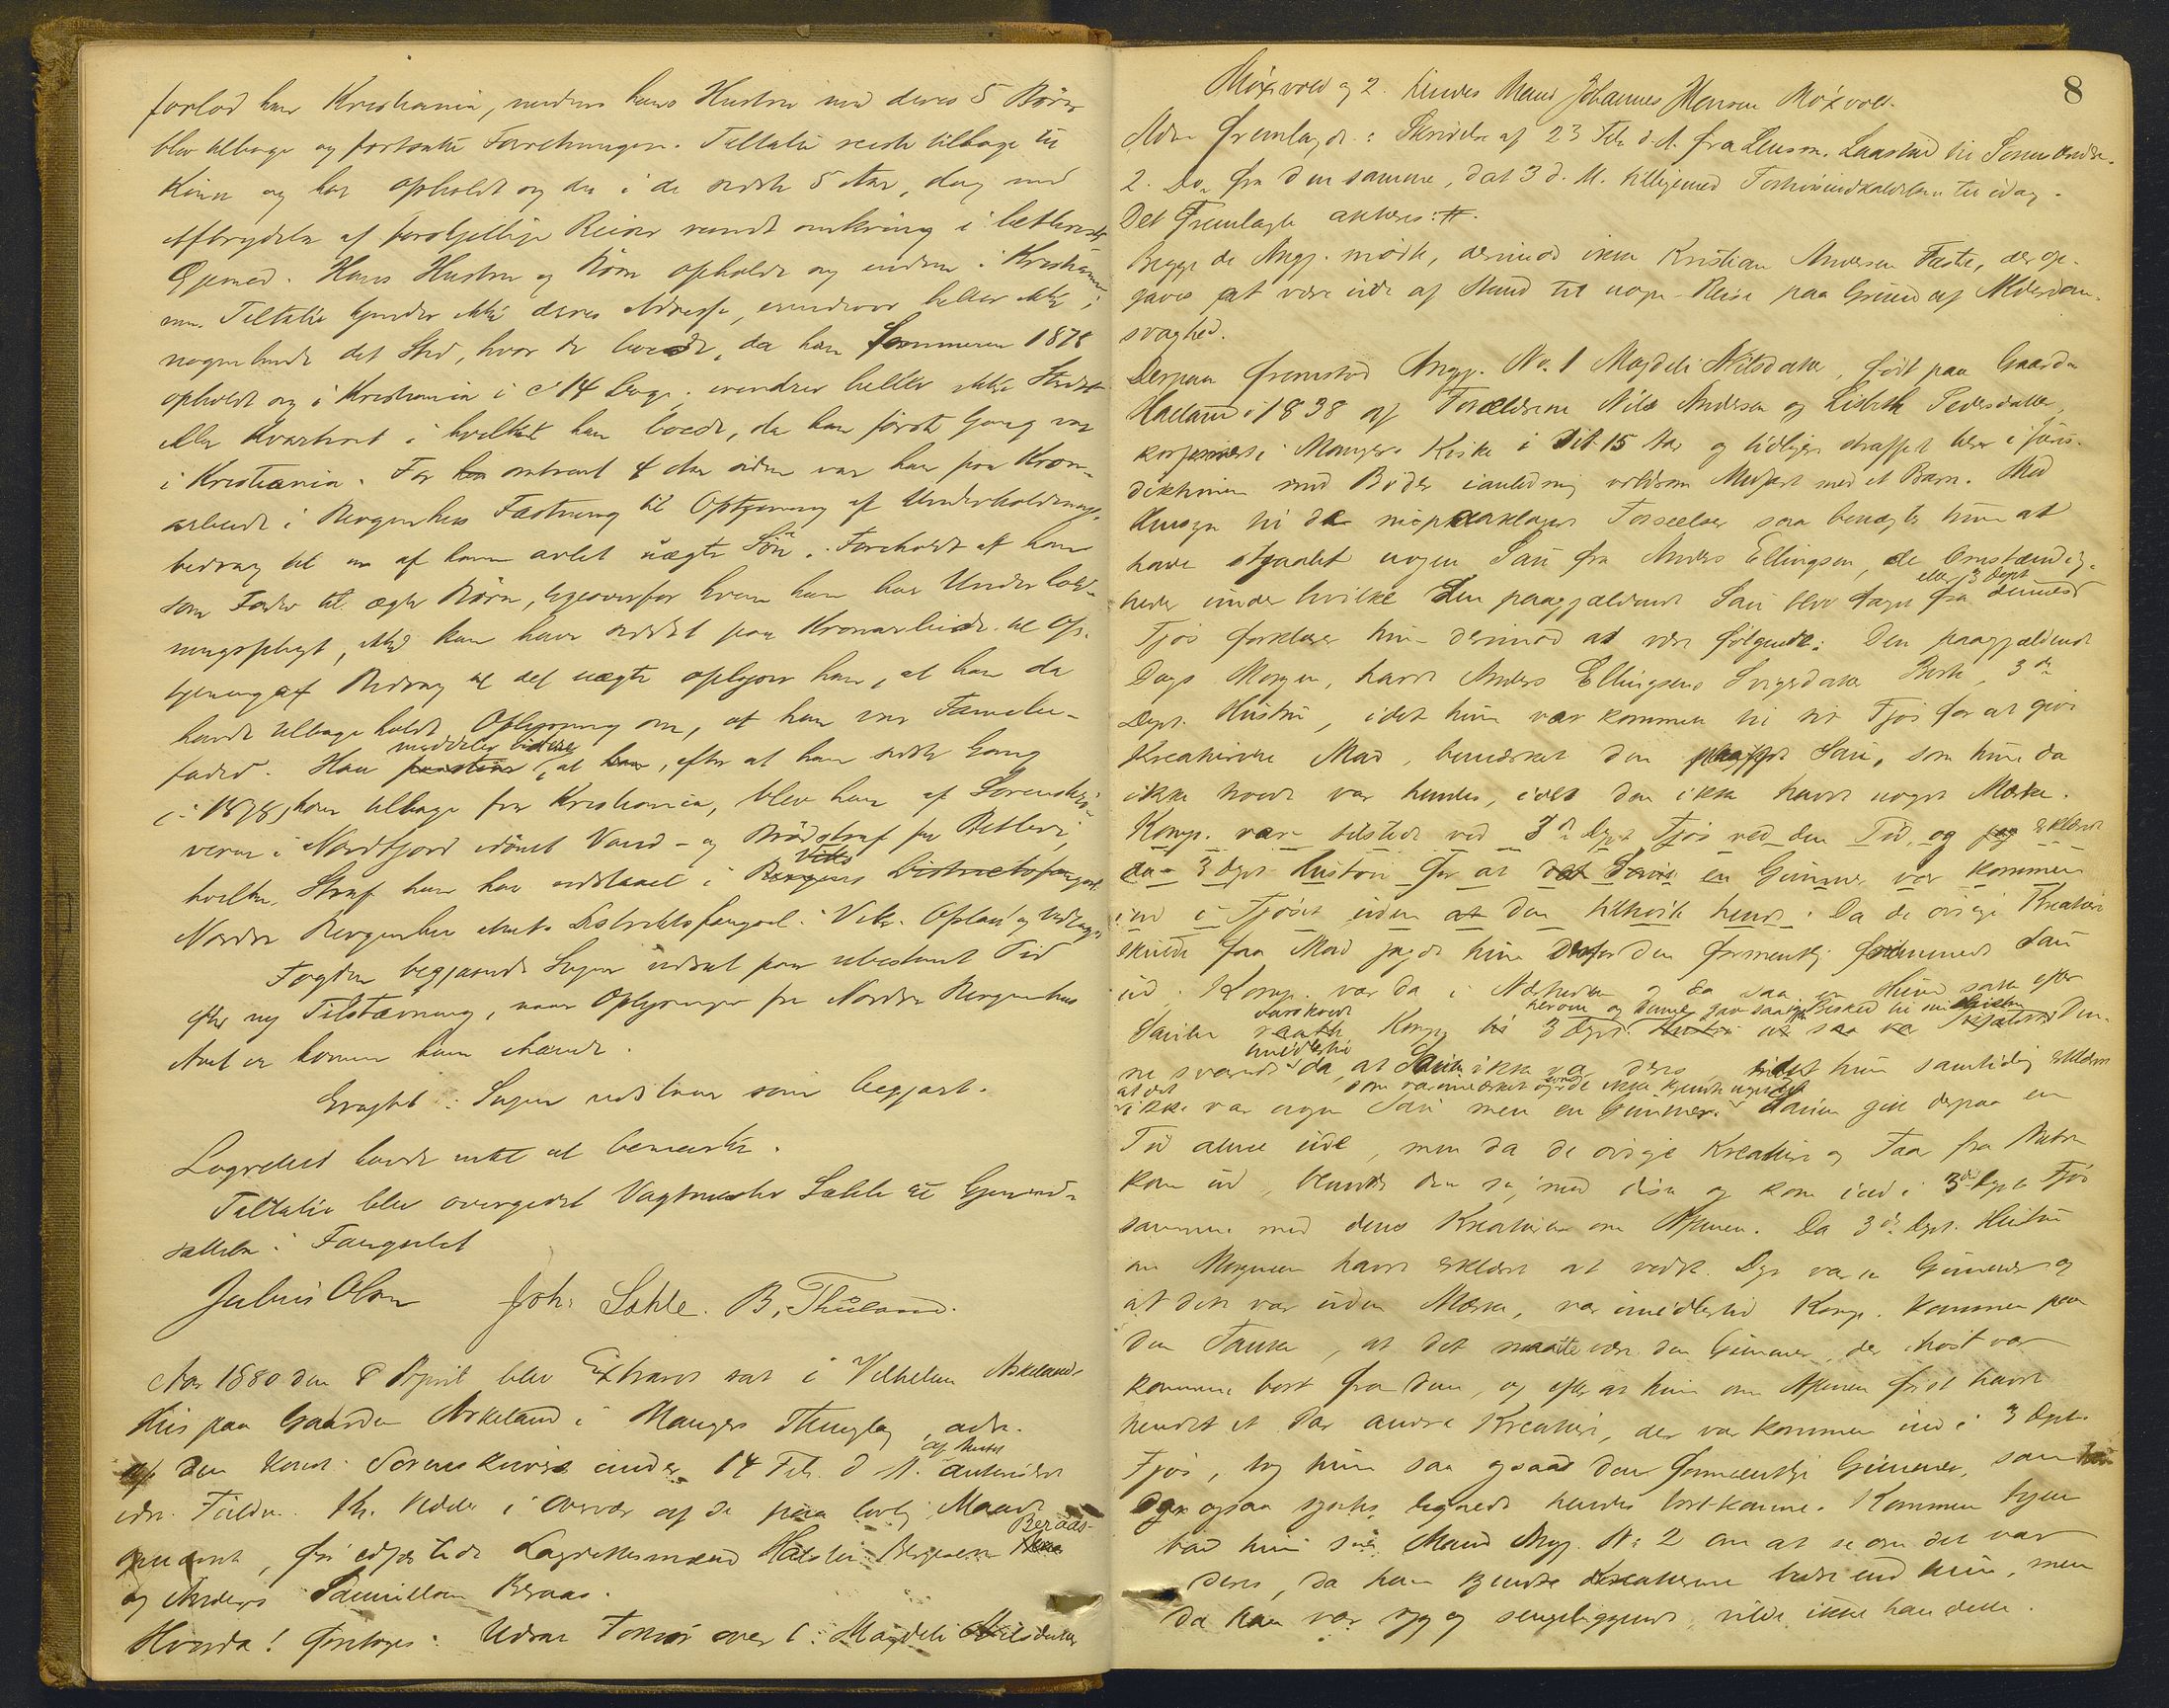 forlod han Kristiania, medens hans Hustru med deres 5 Børn
blev tilbage og fortsatte Forretningen. Tiltalte reiste tilbage til
Kinn og har opholdt sig der i de sidste 5 Aar, dog med
Afbrydelse af forskjellige Reiser rundt omkring i betlende
Øjemed. Hans Hustru og Børn opholde sig endnu i Kristiania
men Tiltalte kjender ikke deres Adresse, erindrer heller ikke
nogenlunde det Sted, hvor de boede, da han Sommeren 1878
opholdt sig i Kristiania i c 14 Dage, erindrer heller ikke Stedet
eller Kvarteret i hvilket han boede, da han første Gang var
i Kristiania. For omtrent 8 Aar siden var han paa Kron-
arbeide i Bergenhus Fæstning til Aftjening af Underholdnings-
bidrag til en af ham avlet uægte Søn. Foreholdt at han
som Fader til ægte Børn, ligeoverfor hvem han har Underhold-
ningspligt, ikke kan have siddet paa Kronarbeide til Af-
tjening af Bidrag til det uægte oplyser han, at han da
havde tilbageholdt Oplysning om, at han var Familie-
fader. Han meddeler videre, at efter at han sidste Gang
i 1878, kom tilbage fra Kristiania, blev han af Sorenskri-
veren i Nordfjord idømt Vand- og Brødstraf for Betleri,
hvilken Straf han har udstaaet i Viks Distriktsfængsel
Nordre Bergenhus Amts Distriktsfængsel i Vik. Oplæst og vedtaget
Fogden begjærede Sagen udsat paa ubestemt Tid
efter ny Tilstævning, naar Oplysninger fra Nordre Bergenhus
Amt er kommen ham ihænde.
Eragtet: Sagen udstaar som begjært.
Lagrettet havde intet at bemærke.
Tiltalte blev overgivet Vagtmester Sahle til Gjenind-
sættelse i Fængslet
Julius Olsen Joh. Sahle. B. Thuland.
Aar 1880 den 8 April blev Extraret sat i Vilhelm Askelands
Hus paa Gaarden Askeland i Mangers Thinglag, adm.
af den konst. Sorenskriver under 14 Feb. d. A. af Amtet antaget
edsv. Fuldm. Th. i Overvær af de paa lovlig Maade
opnævnte, før edfæstede Lagrettesmænd Halstein Berge Beraas
og Anders Samuelsen Beraas.
Hvorda! foretoges: Udenr. Forhør over 1. Magdeli Nilsdatter
8
Røxvold og 2. hendes Mand Johannes Monsen Røxvold.
Adm. fremlagde: 1. Skrivelse af 23 Feb. d. A. fra Lensm. Laastad til Sorenskr.
2. Do fra den samme, dat 3 d. M. tilligemed Forhørsindkaldelsen til idag.
Det Fremlagte akteres:
Begge de Angj. mødte, derimod ikke Kristian Andersen Fæste, der op-
gaves at være ude af Stand til nogen Reise paa Grund af Alderdoms-
svaghed.
Derpaa fremstod Angj. No. 1 Magdeli Nilsdatter, født paa Gaarden
Haaland i 1838 af Forældrene Nils Andersen og Lisbeth Pedersdatter,
konfirmeret i Mangers Kirke i sit 15 Aar og tidligere straffet her i Juris-
diktionen med Bøder i anledning voldsom Medfart med et Barn. Med
Hensyn til de nu paaklagede Forseelser saa benægter hun at
have stjaalet nogen Sau fra Anders Ellingsen, de Omstændig-
heder under hvilke den paagjældende Sau blev tagen fra dennes eller 3 Dept
Fjøs forklarer hun derimod at være følgende: Den paagjældende
Dags Morgen, havde Anders Ellingsens Svigerdatter Berte, 3die
Dept. Hustru, idet hun var kommen til sit Fjøs for at give
Kreaturene Mad, bemærket den Sau, som hun da
ikke troede var hendes, idet den ikke havde noget Mærke.
Komp. var tilstede ved 3die Dept Fjøs ved den Tid, og erklærede
da 3 Dept Hustru for at en Gimmer var kommen
ind i Fjøset uden at den tilhørte hende. Da de øvrige Kreaturer
skulde faa Mad jagede hun derfor den formentlig fremmede Sau
ud. Komp. var da i Nærheden og da saa en Hund satte efter
Sauen Komp. til 3 Dept. herom og denne gav saadan Besked til sin Hustru Den-
ne svarede imidlertid da, at Sauen ikke var deres, idet hun samtidig erklærede
at det ikke var nogen Sau men en Gimmer som var umærket og de ikke kjendte noget til. Sauen gik derpaa en
Tid alene ude, men da de øvrige Kreaturer og Faar fra
kom ud, blandede den sig med disse og kom ind i 3die Dept Fjøs
sammen med deres Kreaturer om Aftenen. Da 3die Dept. Hustru
om Morgenen havde erklæret at vedk. Dyr var en Gimmer og
at den var uden Mærke, var imidlertid Komp. kommen paa
den Tanke, at det maatte være den Gimmer, der i høst var
kommen bort fra dem, og efter at hun om Aftenen først havde
hendet et Par andre Kreaturer, der var kommen ind i 3 Dept.
Fjøs, tog hun saa ogsaa den formentlige Gimmer, som hun
ogsaa syntes lignede hendes bortkomne. Kommen hjem
bad hun sin Mand Angj. No 2 om at se om det var
deres, da han kjendte Kreaturerne bedre end hun, men
da han var syg og sengeliggende, vilde ikke han dette.